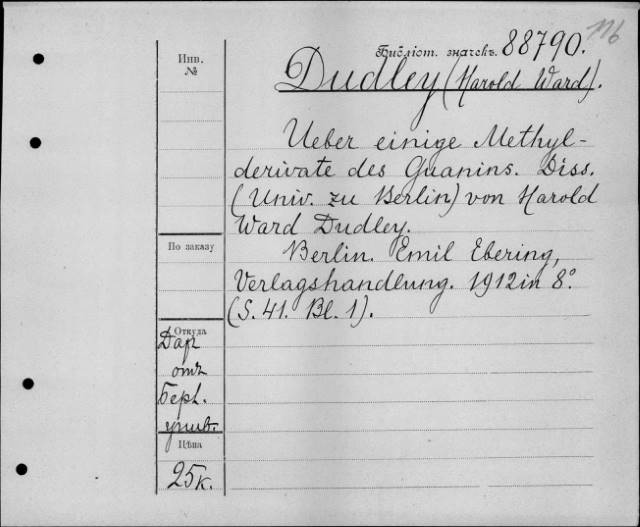 116
Библіот. значекъ 88790.
Инв.
№
Dudley (Harold Ward).
Ueber einige Methyl-
derivate des Guanins. Diss.
(Univ. zu Berlin) von Harold
Ward Dudley.
Berlin. Emil Ebering,
Verlagshandlung. 1912 in 8°.
(S. 41. Bl. 1).
По заказу
Откуда
Дар
отъ
Берл.
унив.
Цѣна
25к.